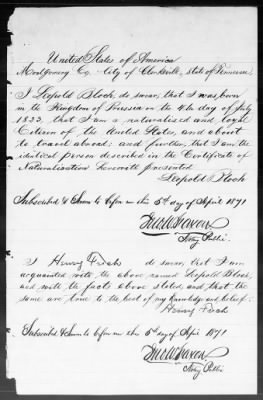 United States of America
Montgomery Co. City of Clarksville, State of Tennessee
I Leopold Bloch, do swear, that I was born
in the Kingdom of Prussia on the 4th day of July
1833, that I am a naturalised and loyal
Citizen of the United States, and about
to travel abroad; and further, that I am the
identical person described in the Certificate of
Naturalisation herewith presented
Leopold Bloch
Subscribed & Sworn to before me this 5th day of April 1871
Notry Public
I Henry Fech do swear, that I am
acquainted with the above named Leopold Bloch,
and with the facts above stated, and that the
same are true to the best of my knowledge and belief:
Henry Fech
Subscribed & Sworn to before me this 5th day of April 1871
Notry Public